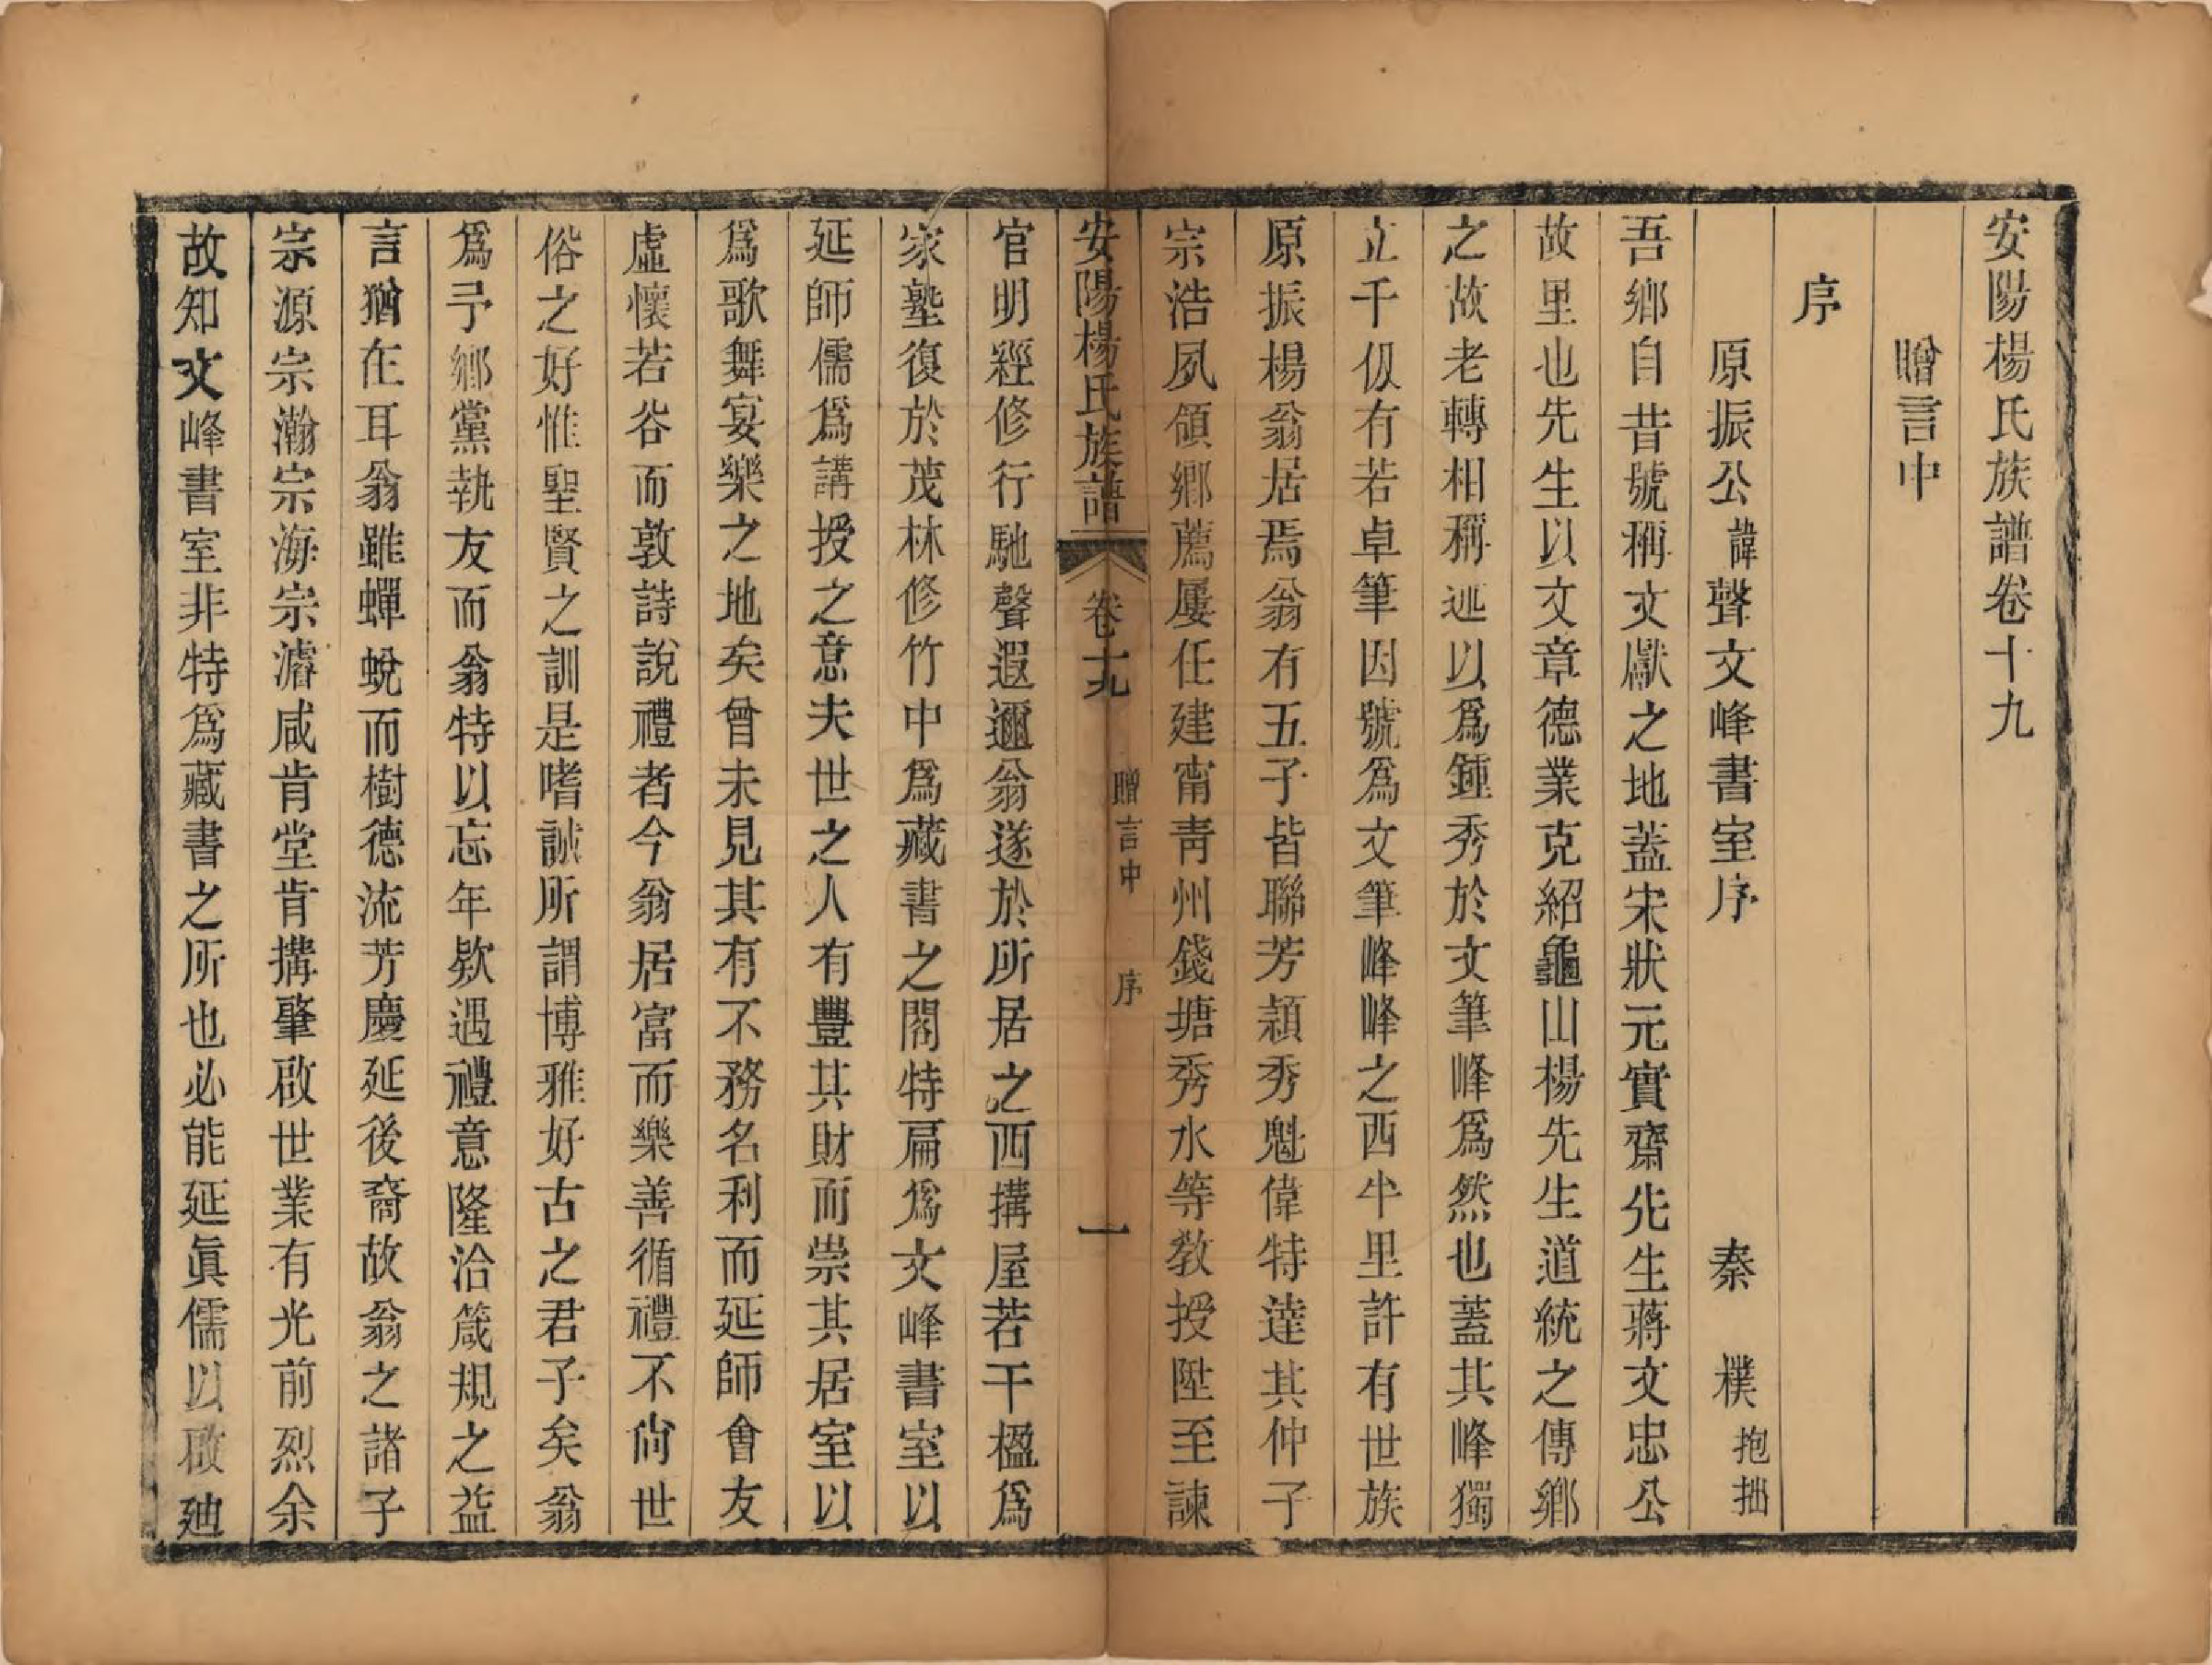 安陽楊氏族譜卷十九
贈言中
序
原振公諱聲文峰書室序 秦 樸抱拙
吾鄉自昔號稱文獻之地蓋宋狀元實齋先生蔣文忠公
故里也先生以文章德業克紹龜山楊先生道統之傳鄉
之故老轉相稱述以爲鍾秀於文筆峰爲然也蓋其峰獨
立千仭有若卓筆因號爲文筆峰峰之西半里許有世族
原振楊翁居焉翁有五子皆聯芳頴秀魁偉特達其仲子
宗浩夙領鄉薦屢任建甯靑州錢塘秀水等敎授陞至諫
安陽楊氏族譜 卷十九 贈言中 序 一
官明經修行馳聲遐邇翁遂於所居之西搆屋若干楹爲
家塾復於茂林修竹中爲藏書之閣特扁爲文峰書室以
延師儒爲講授之意夫世之人有豐其財而崇其居室以
爲歌舞宴樂之地矣曾未見其有不務名利而延師會友
虛懷若谷而敦詩說禮者今翁居富而樂善循禮不尙世
俗之好惟聖賢之訓是嗜誠所謂博雅好古之君子矣翁
爲予鄉黨執友而翁特以忘年欵遇禮意隆洽箴規之益
言猶在耳翁雖蟬蛻而樹德流芳慶延後裔故翁之諸子
宗源宗瀚宗海宗濬咸肯堂肯搆肇啟世業有光前烈余
故知文峰書室非特爲藏書之所也必能延眞儒以啟廸